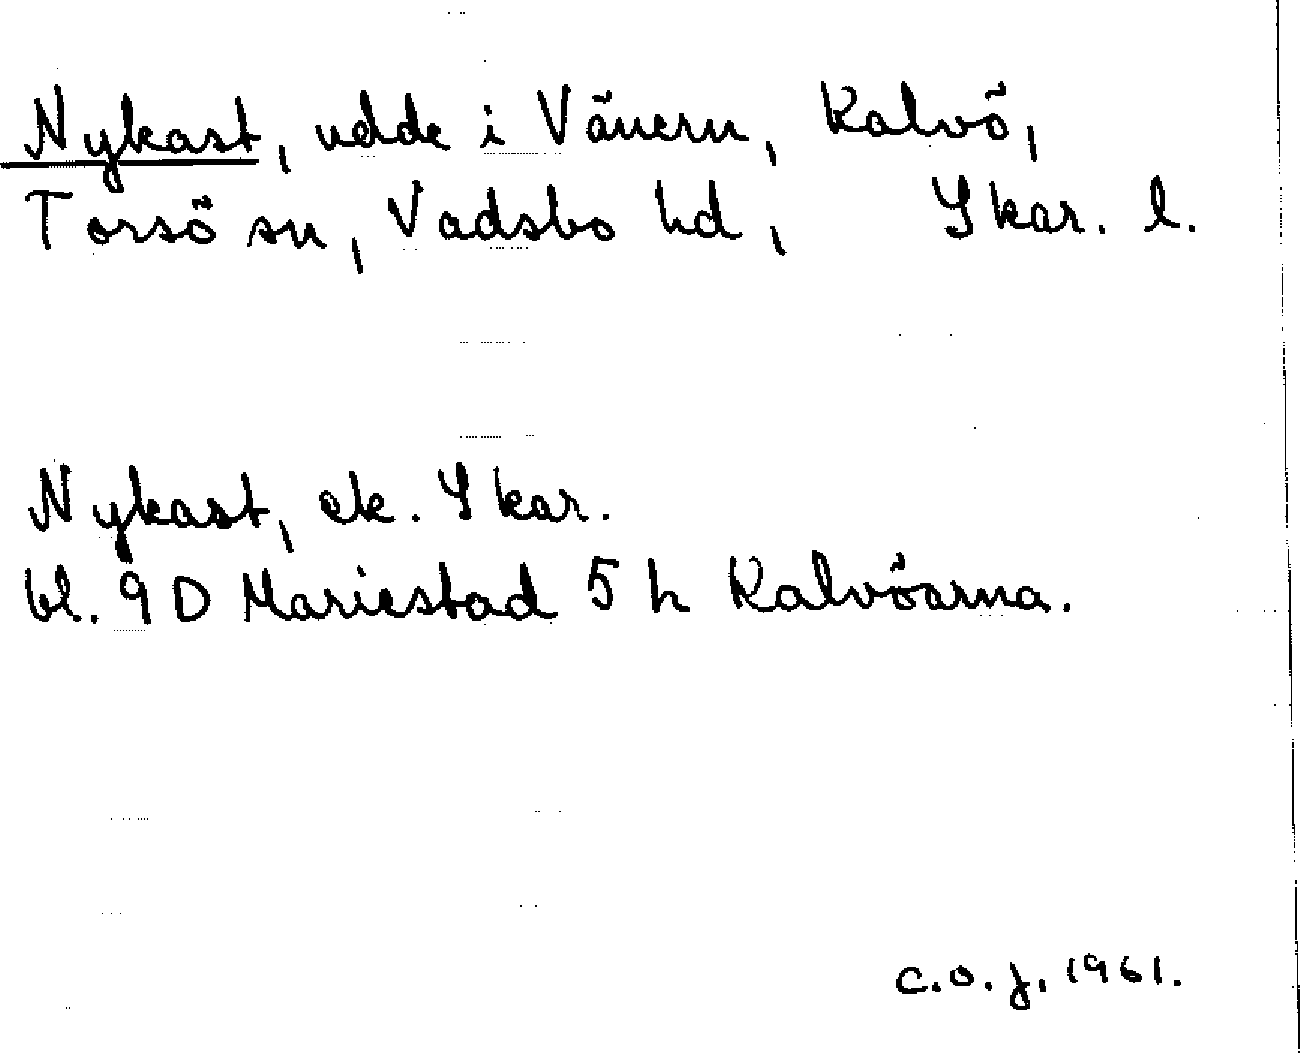 Nykast, udde i Vänern, Kalvö,
Torsö sn, Vadsbo hd, Skar. l.
Nykast, ek. Skar.
bl. 9 D Mariestad 5 h Kalvöarna.
C.O.J. 1961.